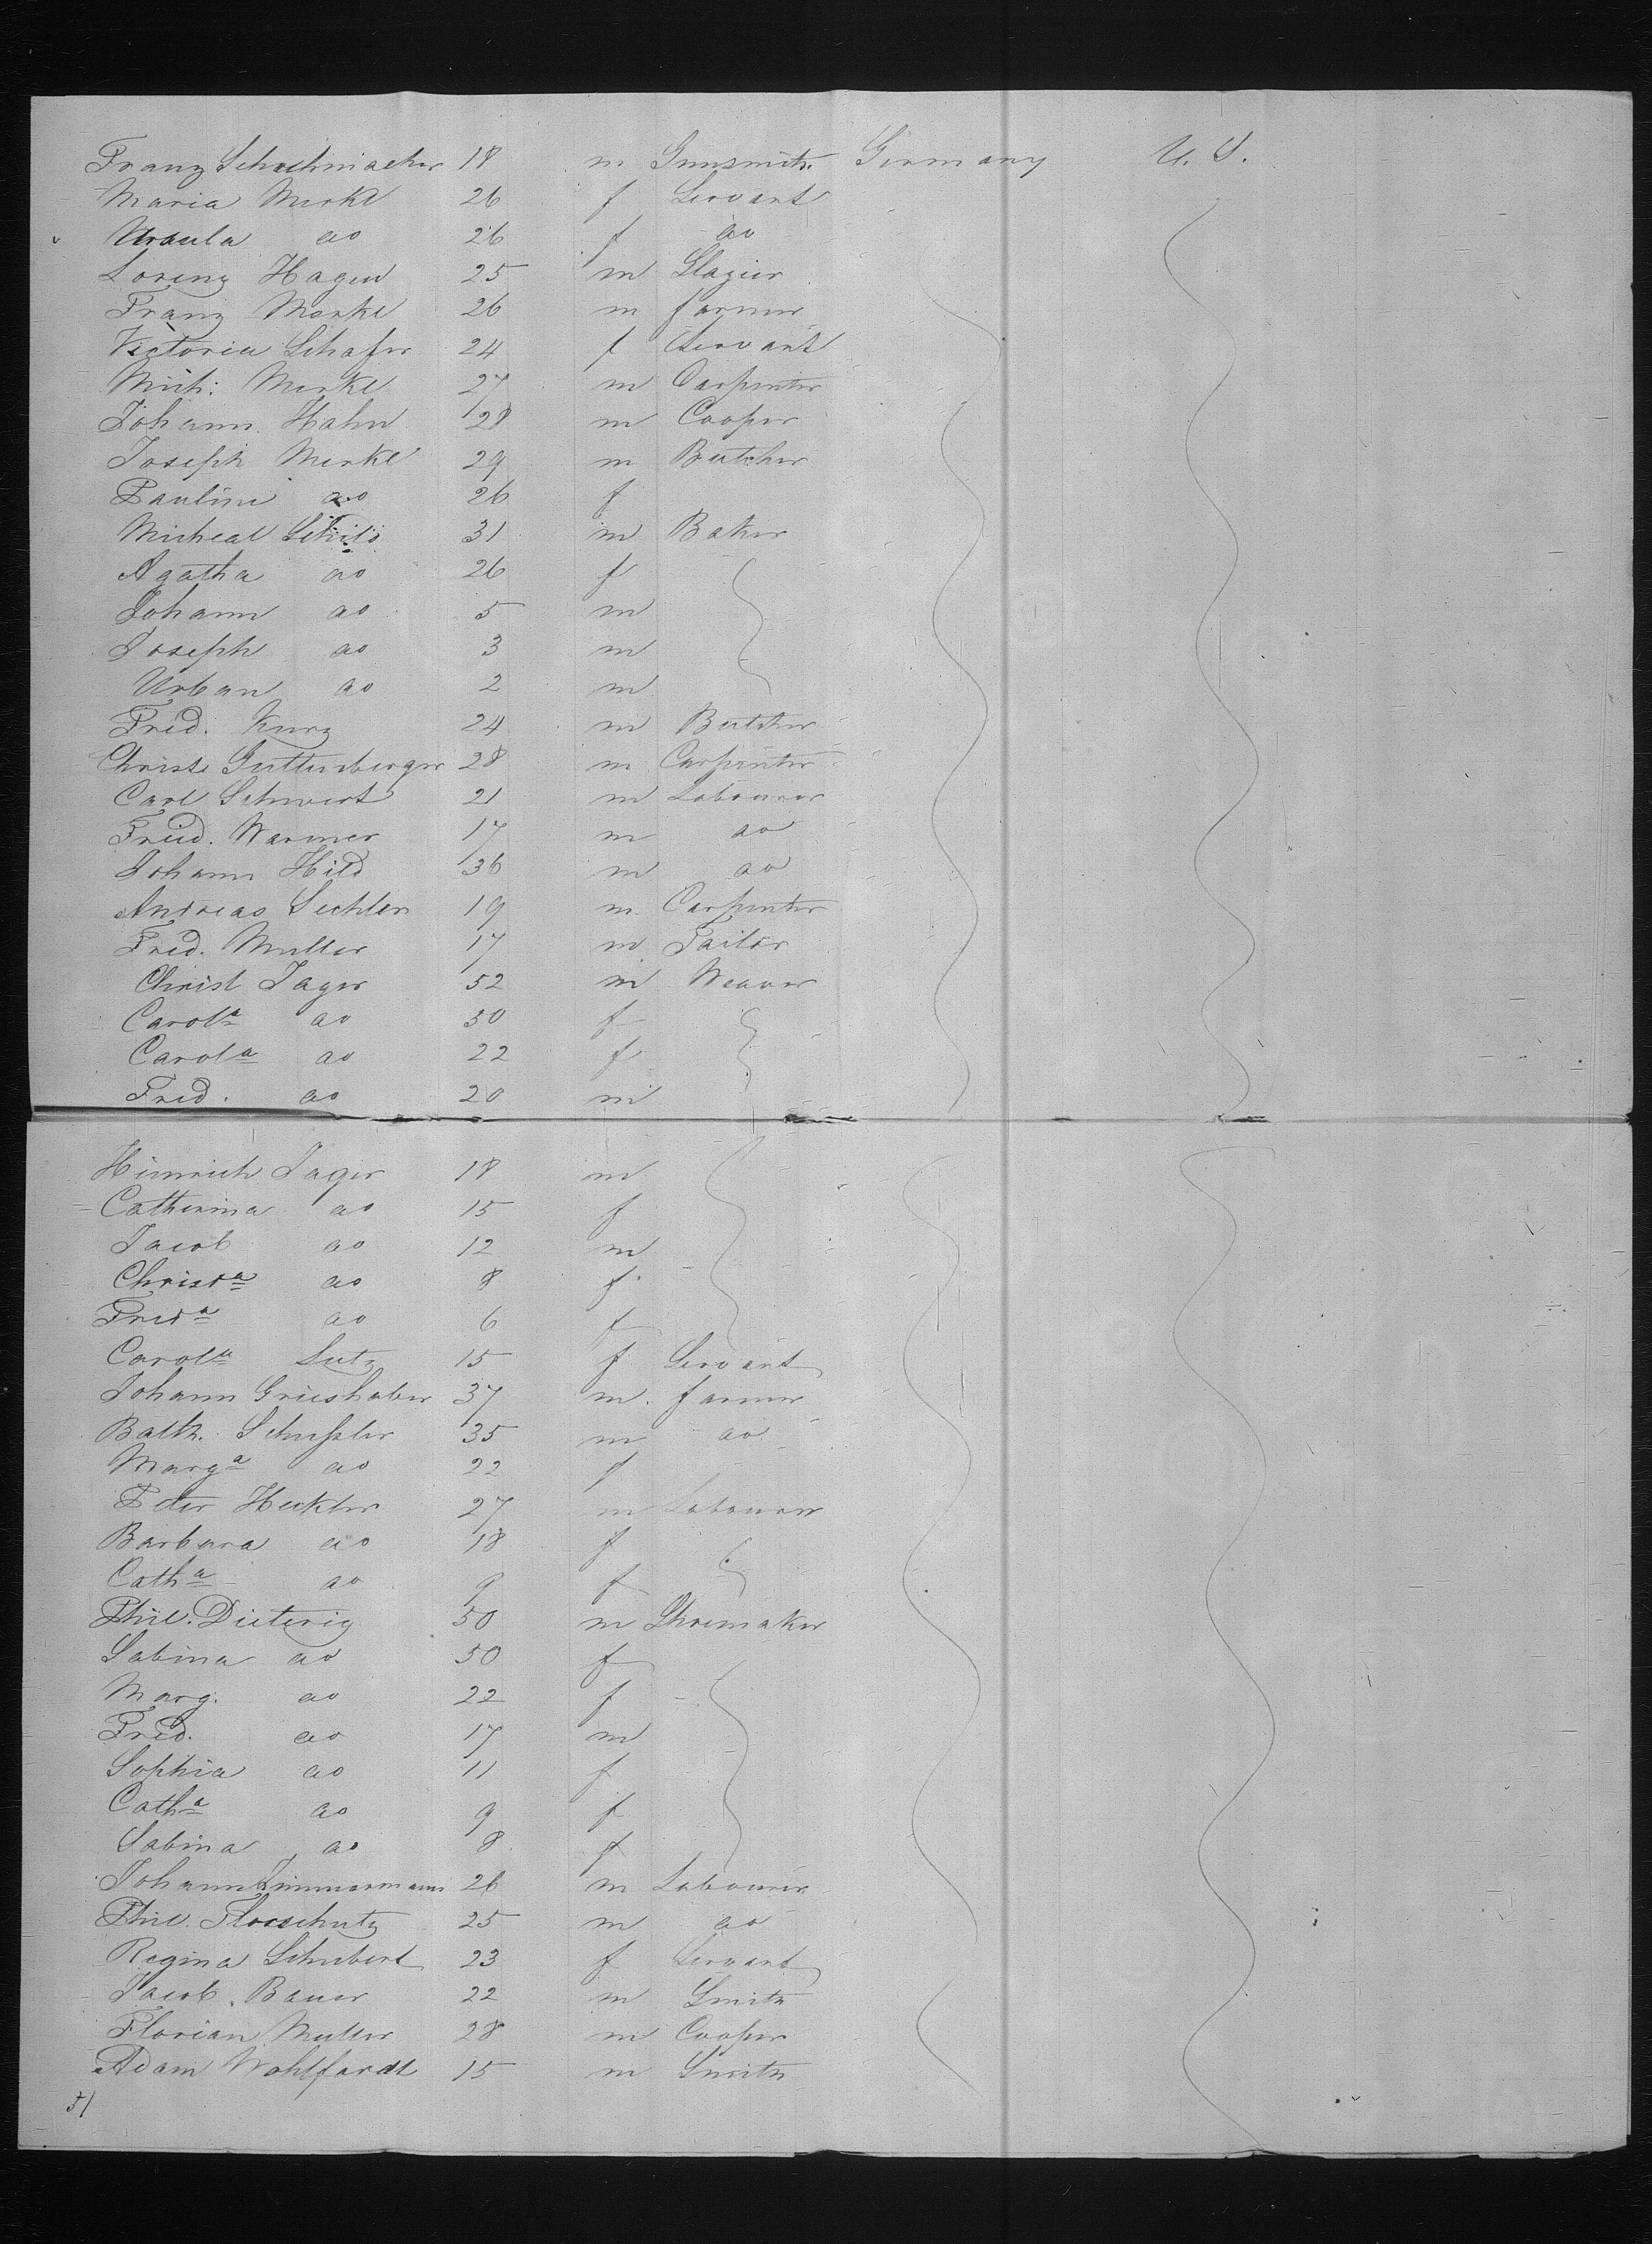 Franz Schuhmacher 18 m Gunsmith Germany U. S.
Maria Merkl 26 f Servant
Ursula do 26 f do
Lorenz Hagen 25 m Glazier
Franz Merkl 26 m farmer
Victoria Schafer 24 f Servant
Mich: Merkl 27 m Carpenter
Johann Hahn 28 m Cooper
Joseph Merkl 29 m Butcher
Paulini do 26 f
Micheal Schild 31 m Baker
Agatha do 26 f
Johann do 5 m
Joseph do 3 m
Urban do 2 m
Fred. Kurz 24 m Butcher
Christ Guttenberger 28 m Carpenter
Carl Schwert 21 m Labourer
Fried. Warmer 17 m do
Johann Hild 36 m do
Andreas Sechler 19 m Carpenter
Fred. Muller 17 m Tailor
Christ Jager 52 m Weaver
Carola do 50 f
Carola do 22 f
Fred. do 20 m
Heinrich Jager 18 m
Catherina do 15 f
Jacob do 12 m
Christa do 8 f
Freda do 6 f
Carola Lutz 15 f Servant
Johann Grieshaber 37 m farmer
Balth. Schussler 35 m do
Marga do 22 f
Peter Heckler 27 m Labourer
Barbara do 18 f
Catha do 9 f
Phil. Dieterig 50 m Shoemaker
Sabina do 50 f
Marg. do 22 f
Fred. do 17 m
Sophia do 11 f
Catha do 9 f
Sabina do 8 f
Johann Zimmermann 26 m Labourer
Phil. Florschutz 25 m do
Regina Schubert 23 f Servant
Jacob Bauer 22 m Smith
Florian Muller 28 m Cooper
Adam Wohlfardt 15 m Smith
51